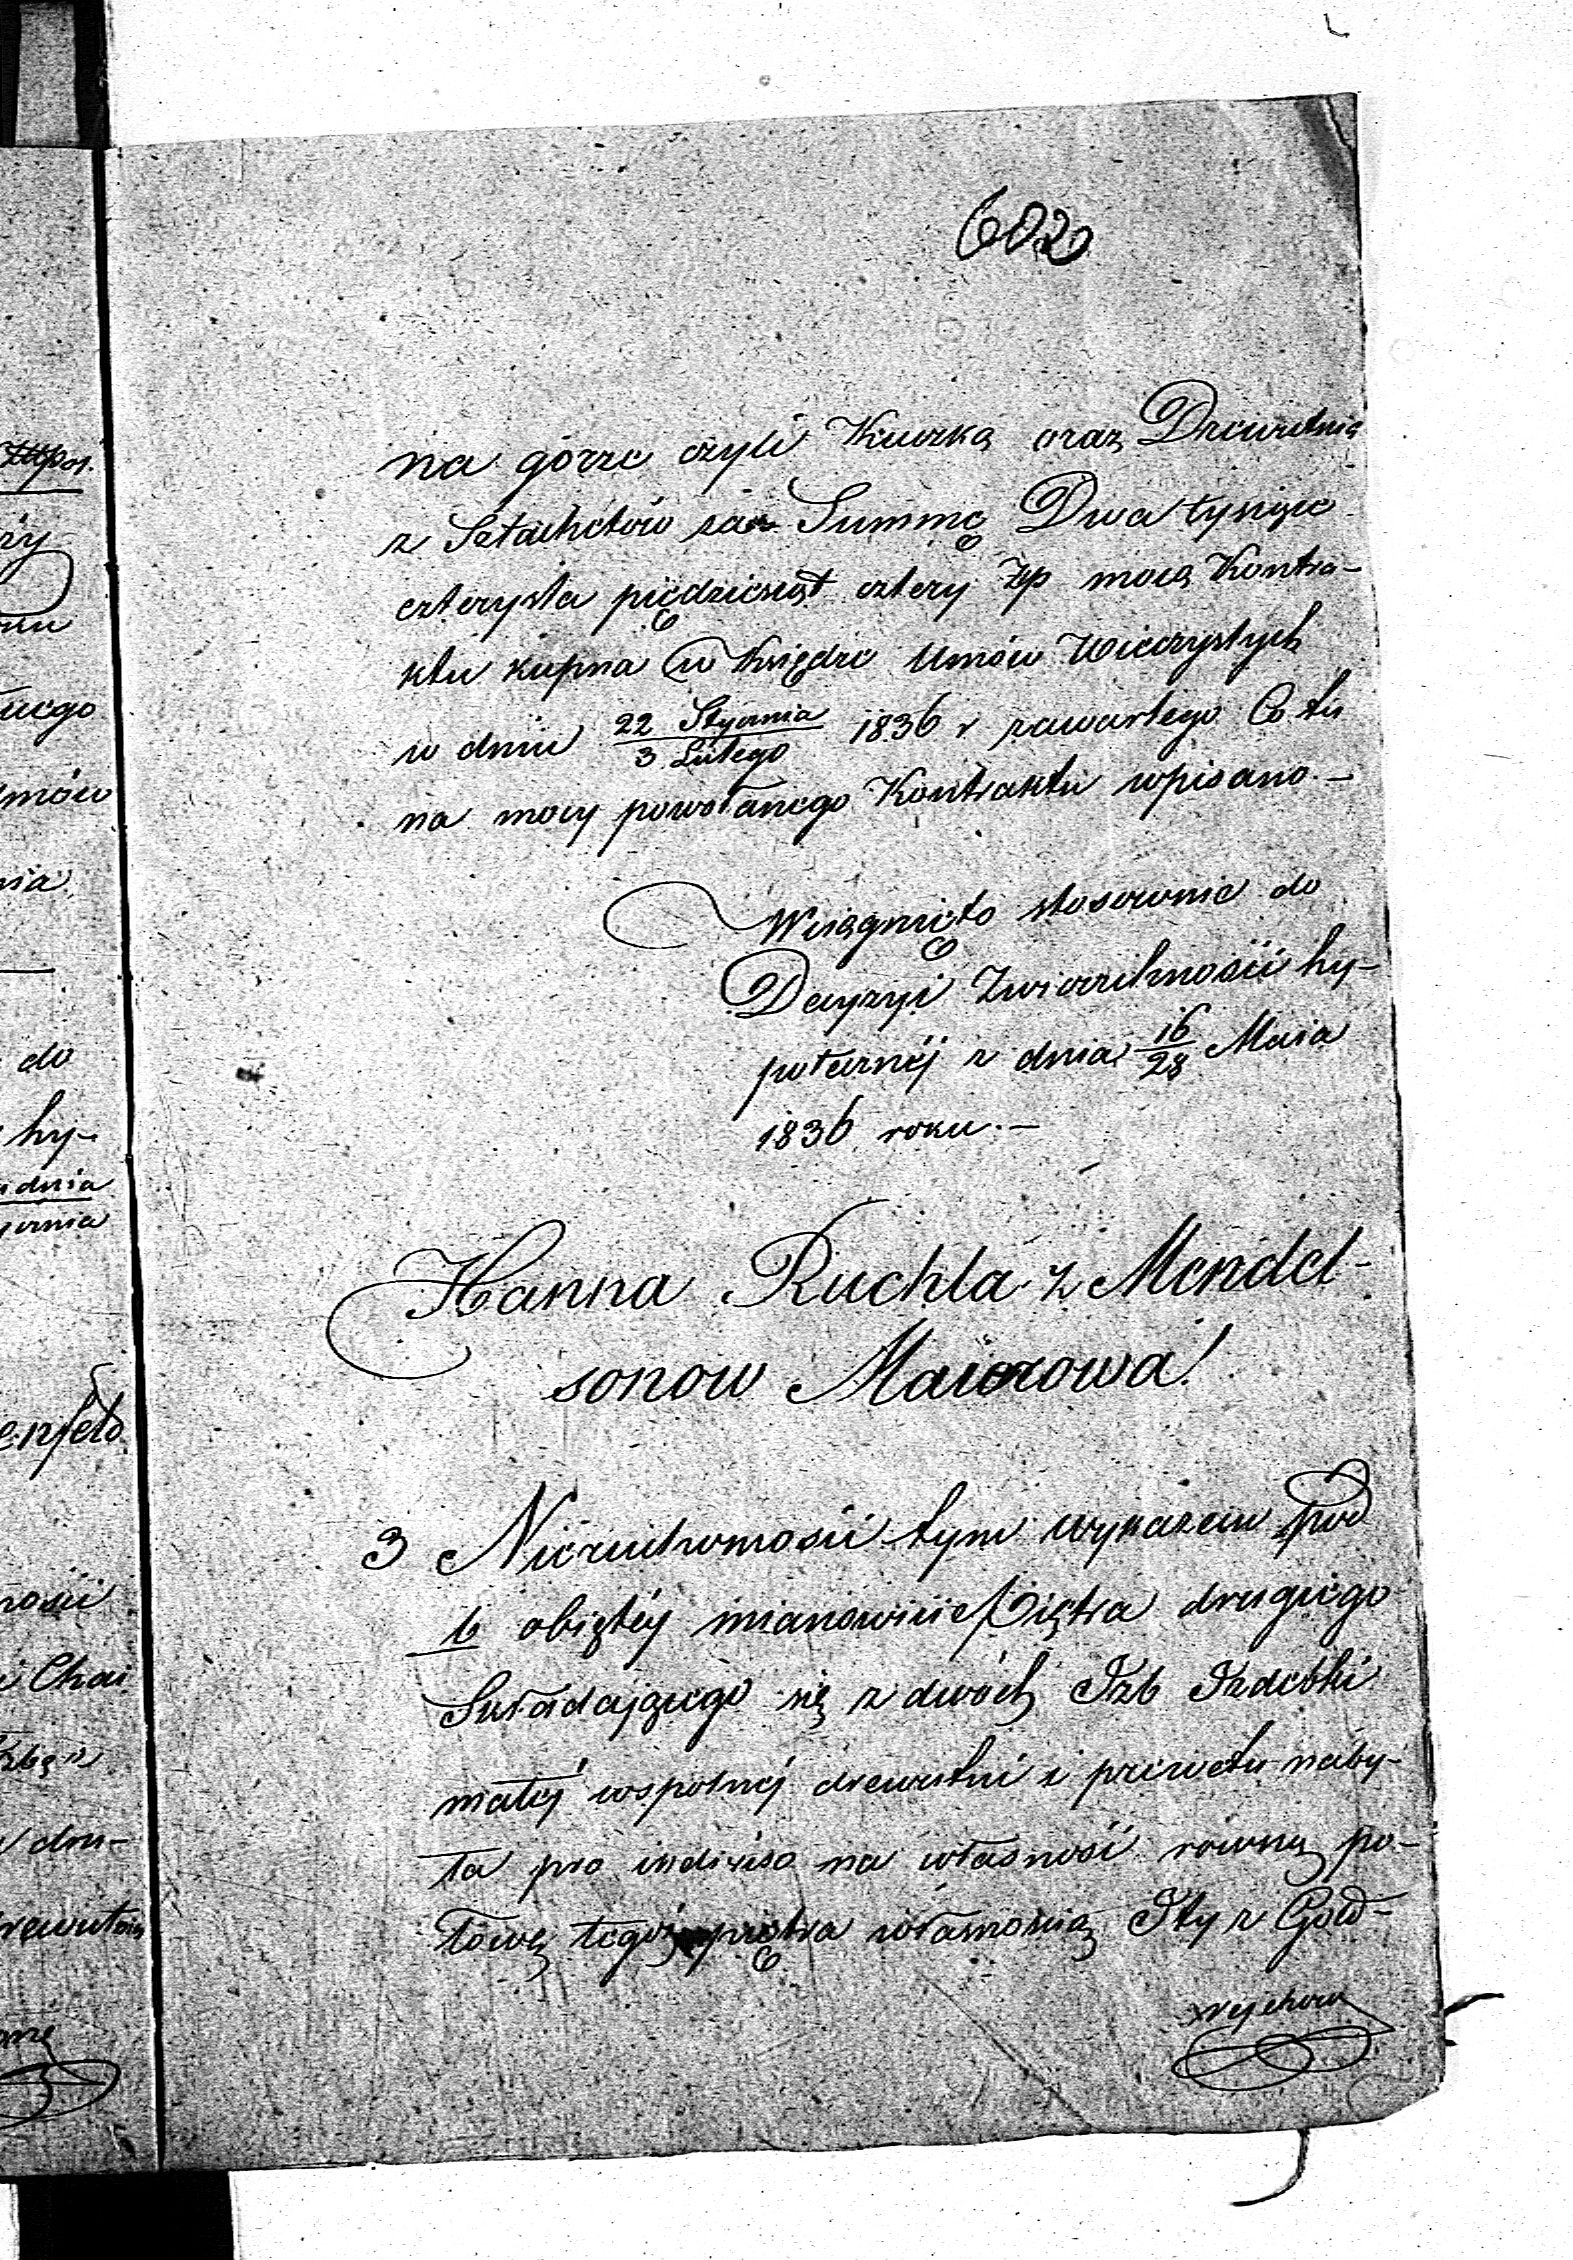 602
na górze czyli Kuczką oraz Drewutnią
z Sztachetów za Summę Dwa tysiące
czterysta piędziesiąt cztery Złp mocą Kontra-
ktu kupna w Księdze Umów Wieczystych
w dniu 22 Stycznia / 3 Lutego 1836 r zawartego Co tu
na mocy powołanego Kontraktu wpisano.—
Wciągnięto stosownie do
Decyzyi Zwierzchności hy-
potecznéj z dnia 16/28 Maia
1836 roku.—
Hanna Ruchla z Mendel-
sonow Maiorowa
3 Nieruchomości tym wykazem pod
b obiętéy mianowicie Piętra drugiego
Składaiącego się z dwóch Izb Izdebki
małéj wspolnéj drewutni i prewetu naby-
ta pro indiviso na własność równą po-
łowę tegoż piętra własnością Ity z Gold-